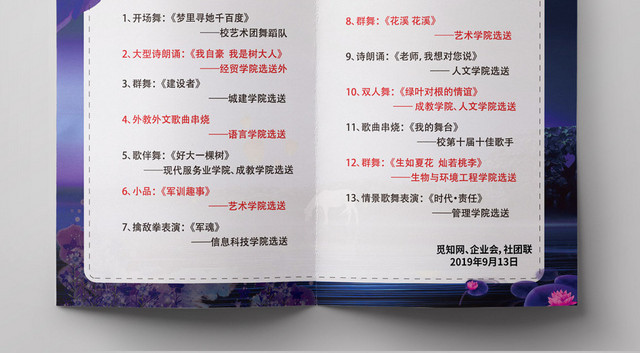 1、开场舞：《梦里寻她千百度》
——校艺术团舞蹈队
2、大型诗朗诵：《我自豪  我是树大人》
——经贸学院选送外
3、群舞：《建设者》
——城建学院选送
4、外教外文歌曲串烧
——语言学院选送
5、歌伴舞：《好大一棵树》
——现代服务业学院、成教学院选送
6、小品：《军训趣事》
——艺术学院选送
7、擒敌拳表演：《军魂》
——信息科技学院选送
8、群舞：《花溪 花溪》
——艺术学院选送
9、诗朗诵：《老师，我想对您说》
—— 人文学院选送
10、双人舞：《绿叶对根的情谊》
—— 成教学院、人文学院选送
11、歌曲串烧：《我的舞台》
——校第十届十佳歌手
12、群舞：《生如夏花  灿若桃李》
——生物与环境工程学院选送
13、情景歌舞表演：《时代·责任》
——管理学院选送
觅知网、企业会，社团联
2019年9月13日